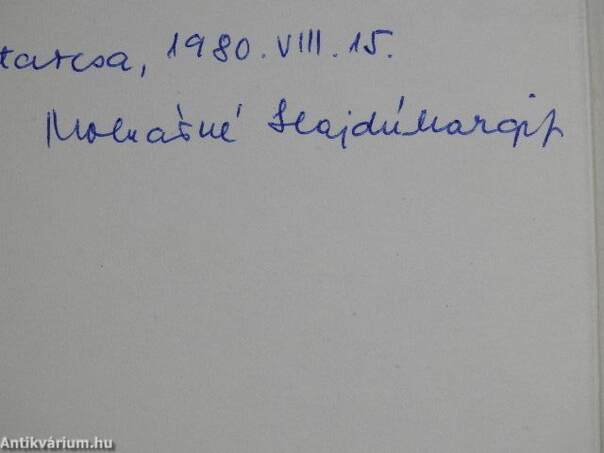 tarcsa, 1980. VIII. 15.
Molnárné Hajdú Margit
Antikvárium.hu